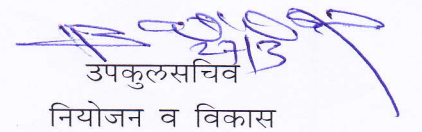 27/3
उपकुलसचिव
नियोजन व विकास